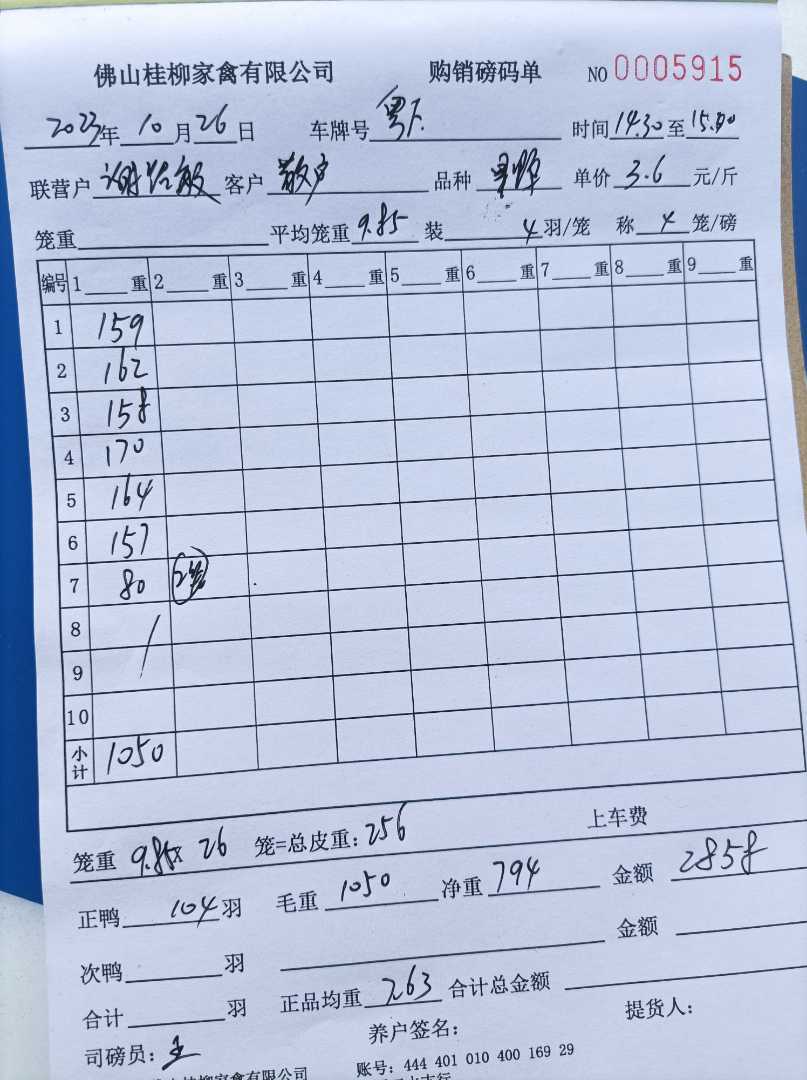 佛山桂柳家禽有限公司 购销磅码单 NO 0005915
2023年 10月26日 车牌号 粤 时间14.30至15.00
联营户 客户 散户 品种 单价 3.6 元/斤
笼重 平均笼重 9.85 装 4 羽/笼 称 4 笼/磅
编号 1 重 2 重 3 重 4 重 5 重 6 重 7 重 8 重 9 重
1 159
2 162
3 158
4 170
5 164
6 157
7 80 2笼
8
9
10
小计 1050
笼重 9.85x 26 笼=总皮重: 256 上车费
正鸭 104 羽 毛重 1050 净重 794 金额 2858
次鸭 羽 金额
合计 羽 正品均重 7.63 合计总金额
司磅员: 王 养户签名: 提货人:
桂柳家禽有限公司 账号: 444 401 010 400 169 29